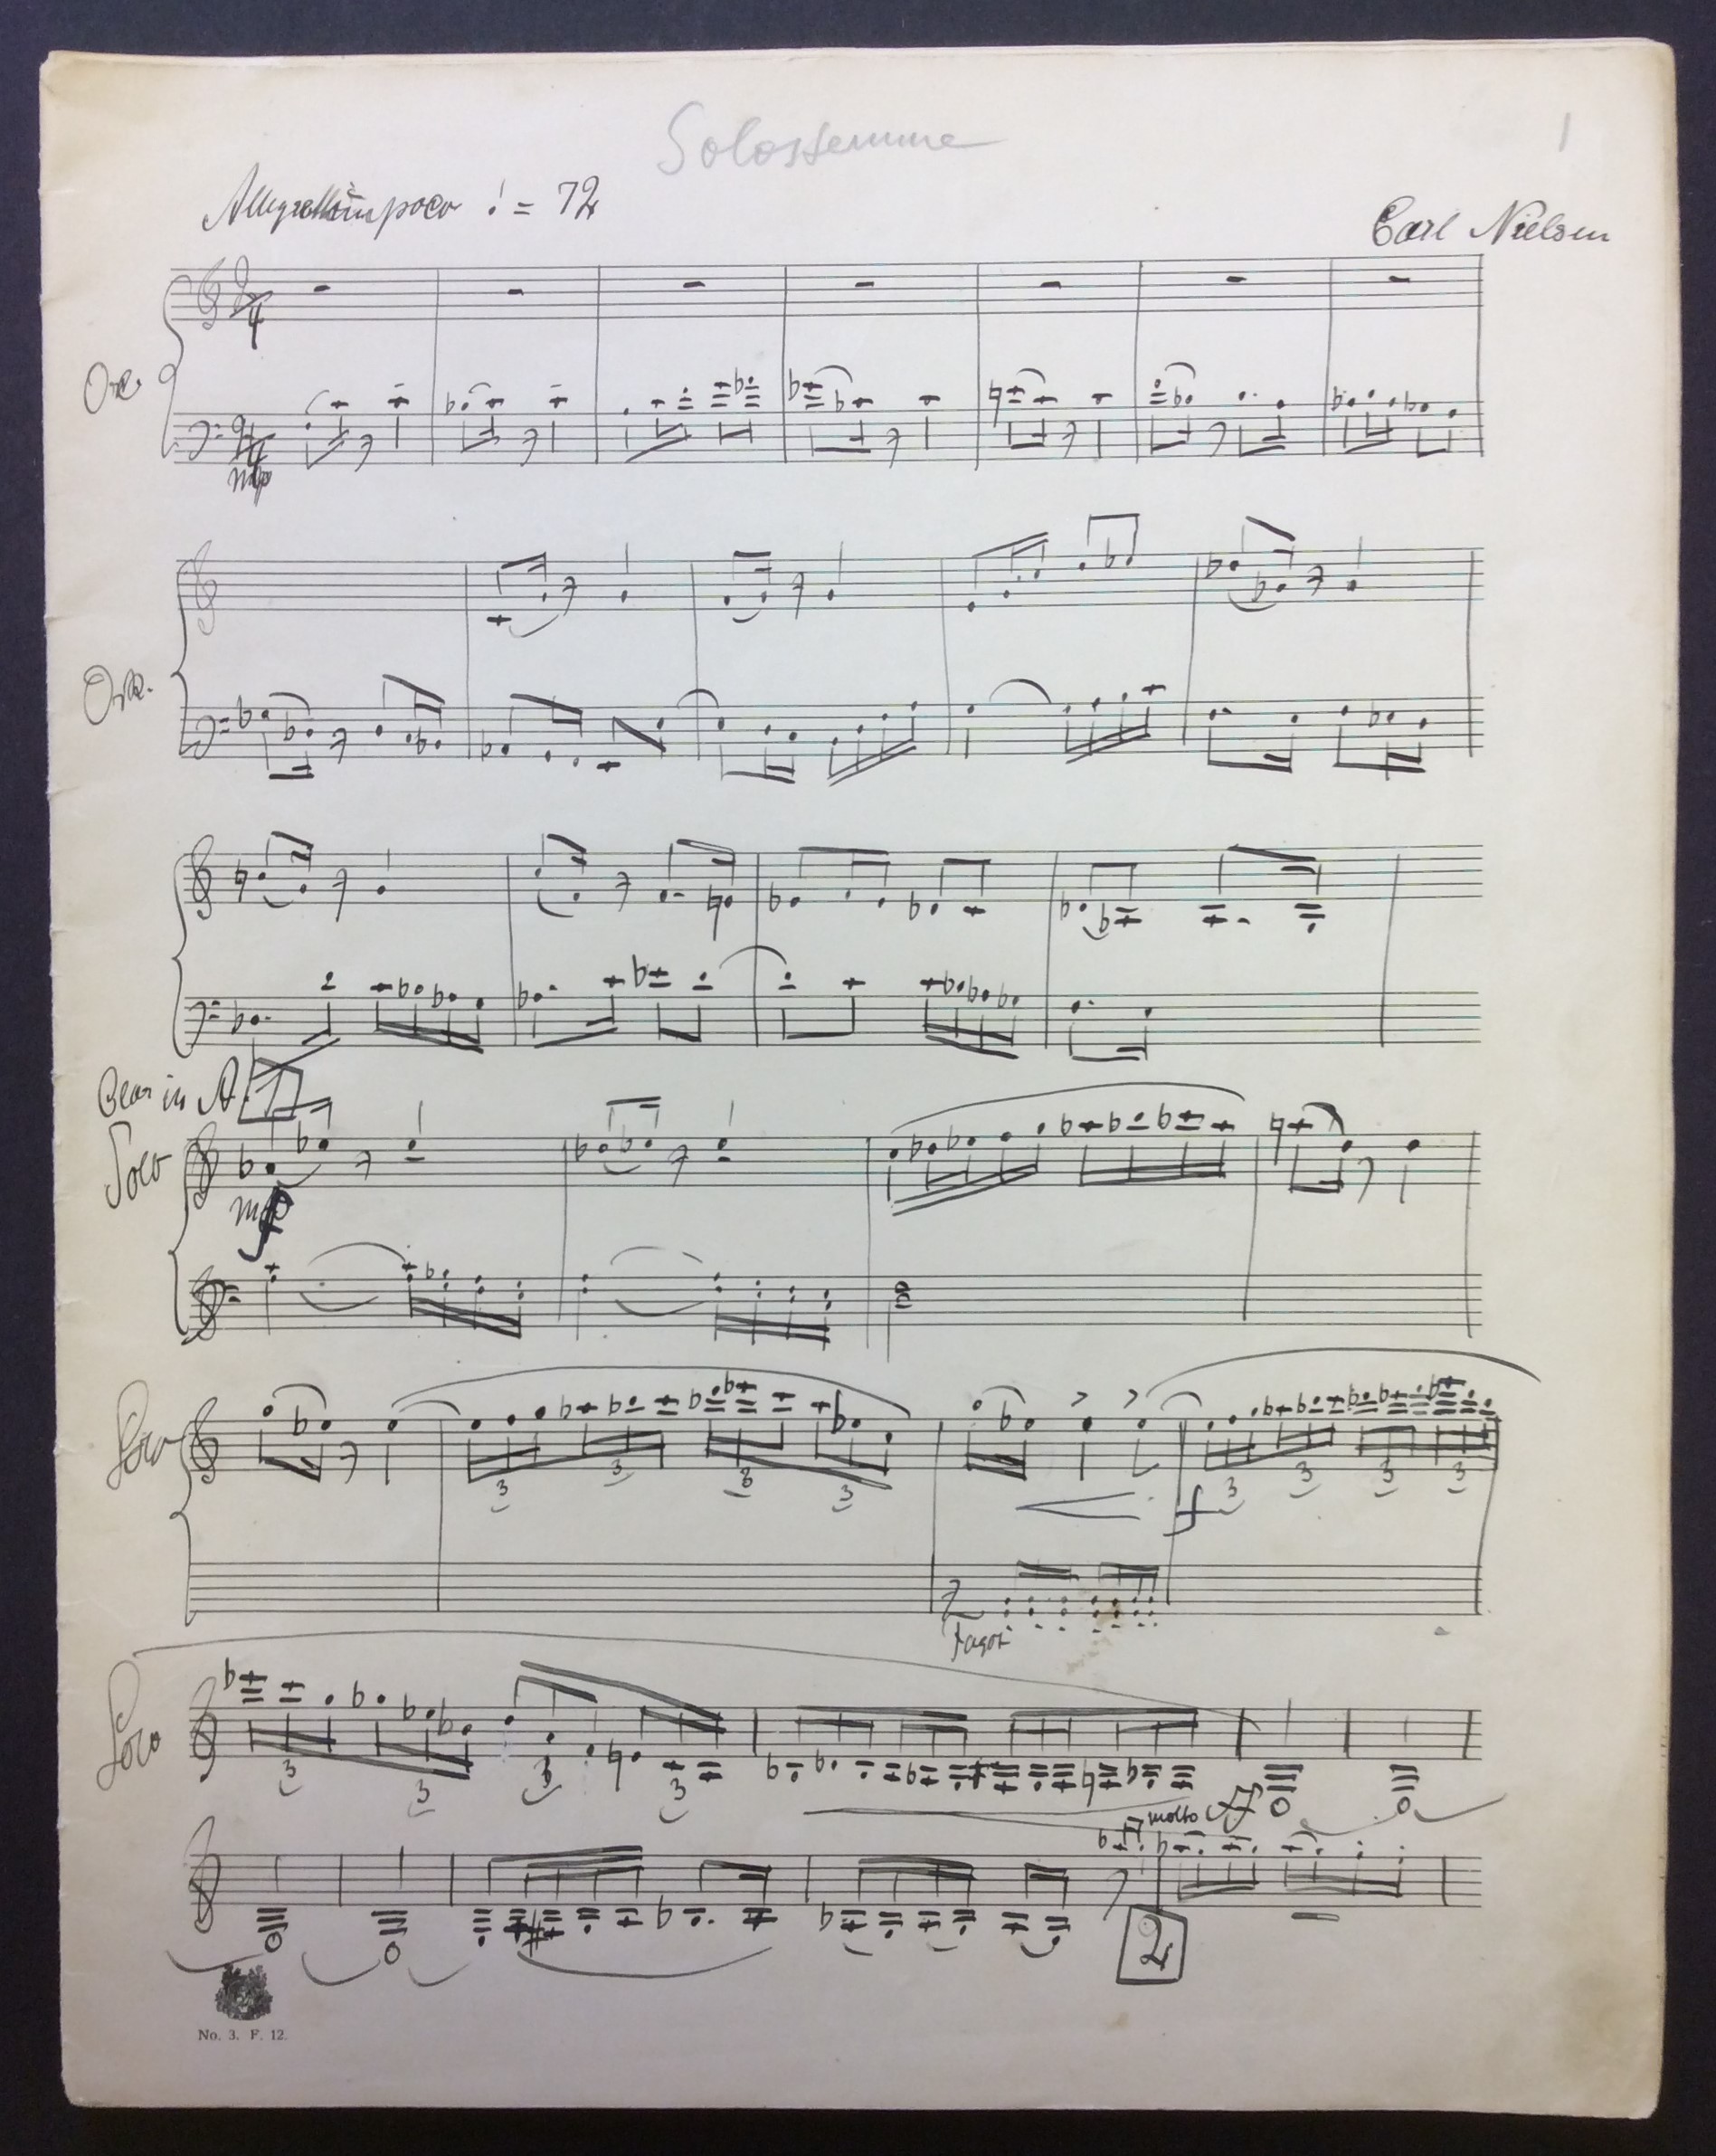 Solostemme
1
Allegretto un poco ♩ = 72
Carl Nielsen
Ork.
mp
Ork.
Clar in A
1
Solo
mp
f
Solo
3 3 3 3
f
3 3 3 3
Fagot
Solo
3 3 3 3
molto ff
2
No. 3. F. 12.